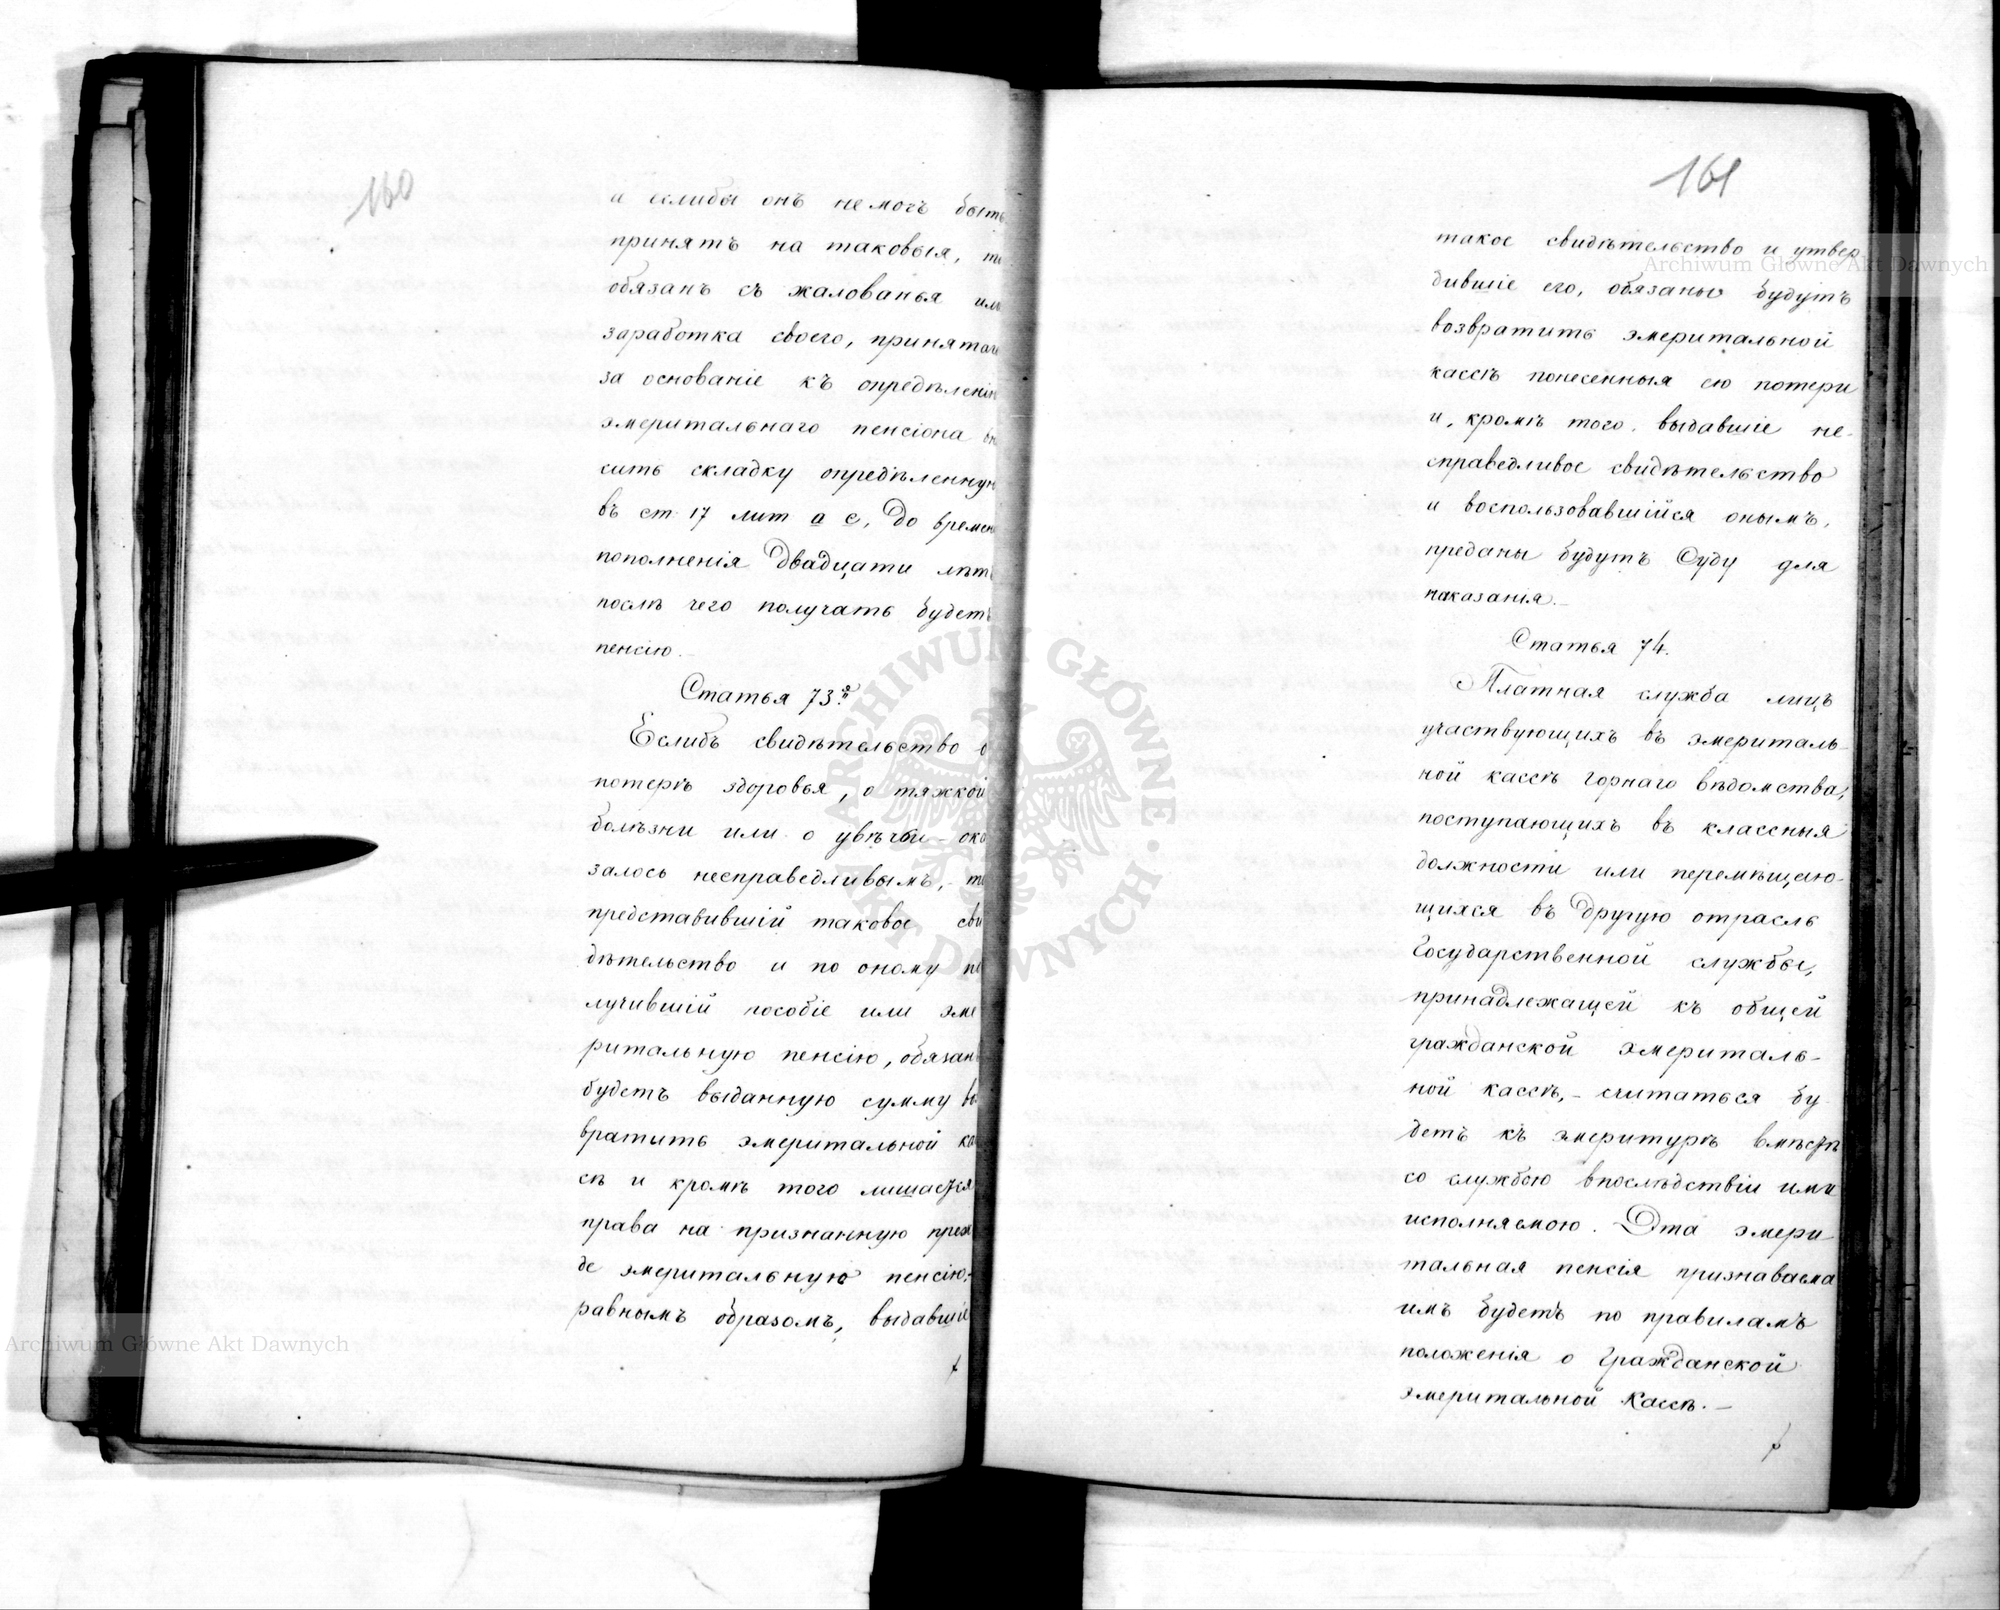 160
а еслибы онъ не могъ быть
принятъ на таковыя, то
обязанъ съ жалованья или
заработка своего, принятаго
за основаніе къ опредѣленію
эмеритальнаго пенсіона вно
сить складку опредѣленную
въ ст. 17 лит a c, до времени
пополненія двадцати лѣтъ
послѣ чего получать будетъ
пенсію.
Статья 73я
Еслибъ свидѣтельство о
потерѣ здоровья, о тяжкой
болѣзни или о увѣчьи - ока
залось несправедливымъ, - то
представившій таковое сви
дѣтельство и по оному по
лучившій пособіе или эме
ритальную пенсію, обязанъ
будетъ выданную сумму воз
вратить эмеритальной кас
сѣ и кромѣ того лишается
права на признанную преж
де эмеритальную пенсію,-
равнымъ образомъ, выдавшіе
161
такое свидѣтельство и утвер
дившіе его, обязаны будутъ
возвратить эмеритальной
кассѣ понесенныя ею потери
и, кромѣ того, выдавшіе не-
справедливое свидѣтельство
и воспользовавшійся онымъ,
преданы будутъ Суду для
наказанія.-
Статья 74.
Платная служба лицъ
участвующихъ въ эмериталь-
ной кассѣ горнаго вѣдомства,
поступающихъ въ классныя
должности или перемѣщаю-
щихся въ другую отрасль
Государственной службы,
принадлежащей къ общей
гражданской эмериталь-
ной кассѣ, - считаться бу
детъ къ эмеритурѣ вмѣстѣ
со службою впослѣдствіи ими
исполняемою. Эта эмери
тальная пенсія признаваема
имъ будетъ по правиламъ
положенія о Гражданской
эмеритальной Кассѣ. -
Archiwum Główne Akt Dawnych
Archiwum Główne Akt Dawnych
ARCHIWUM GŁÓWNE AKT DAWNYCH